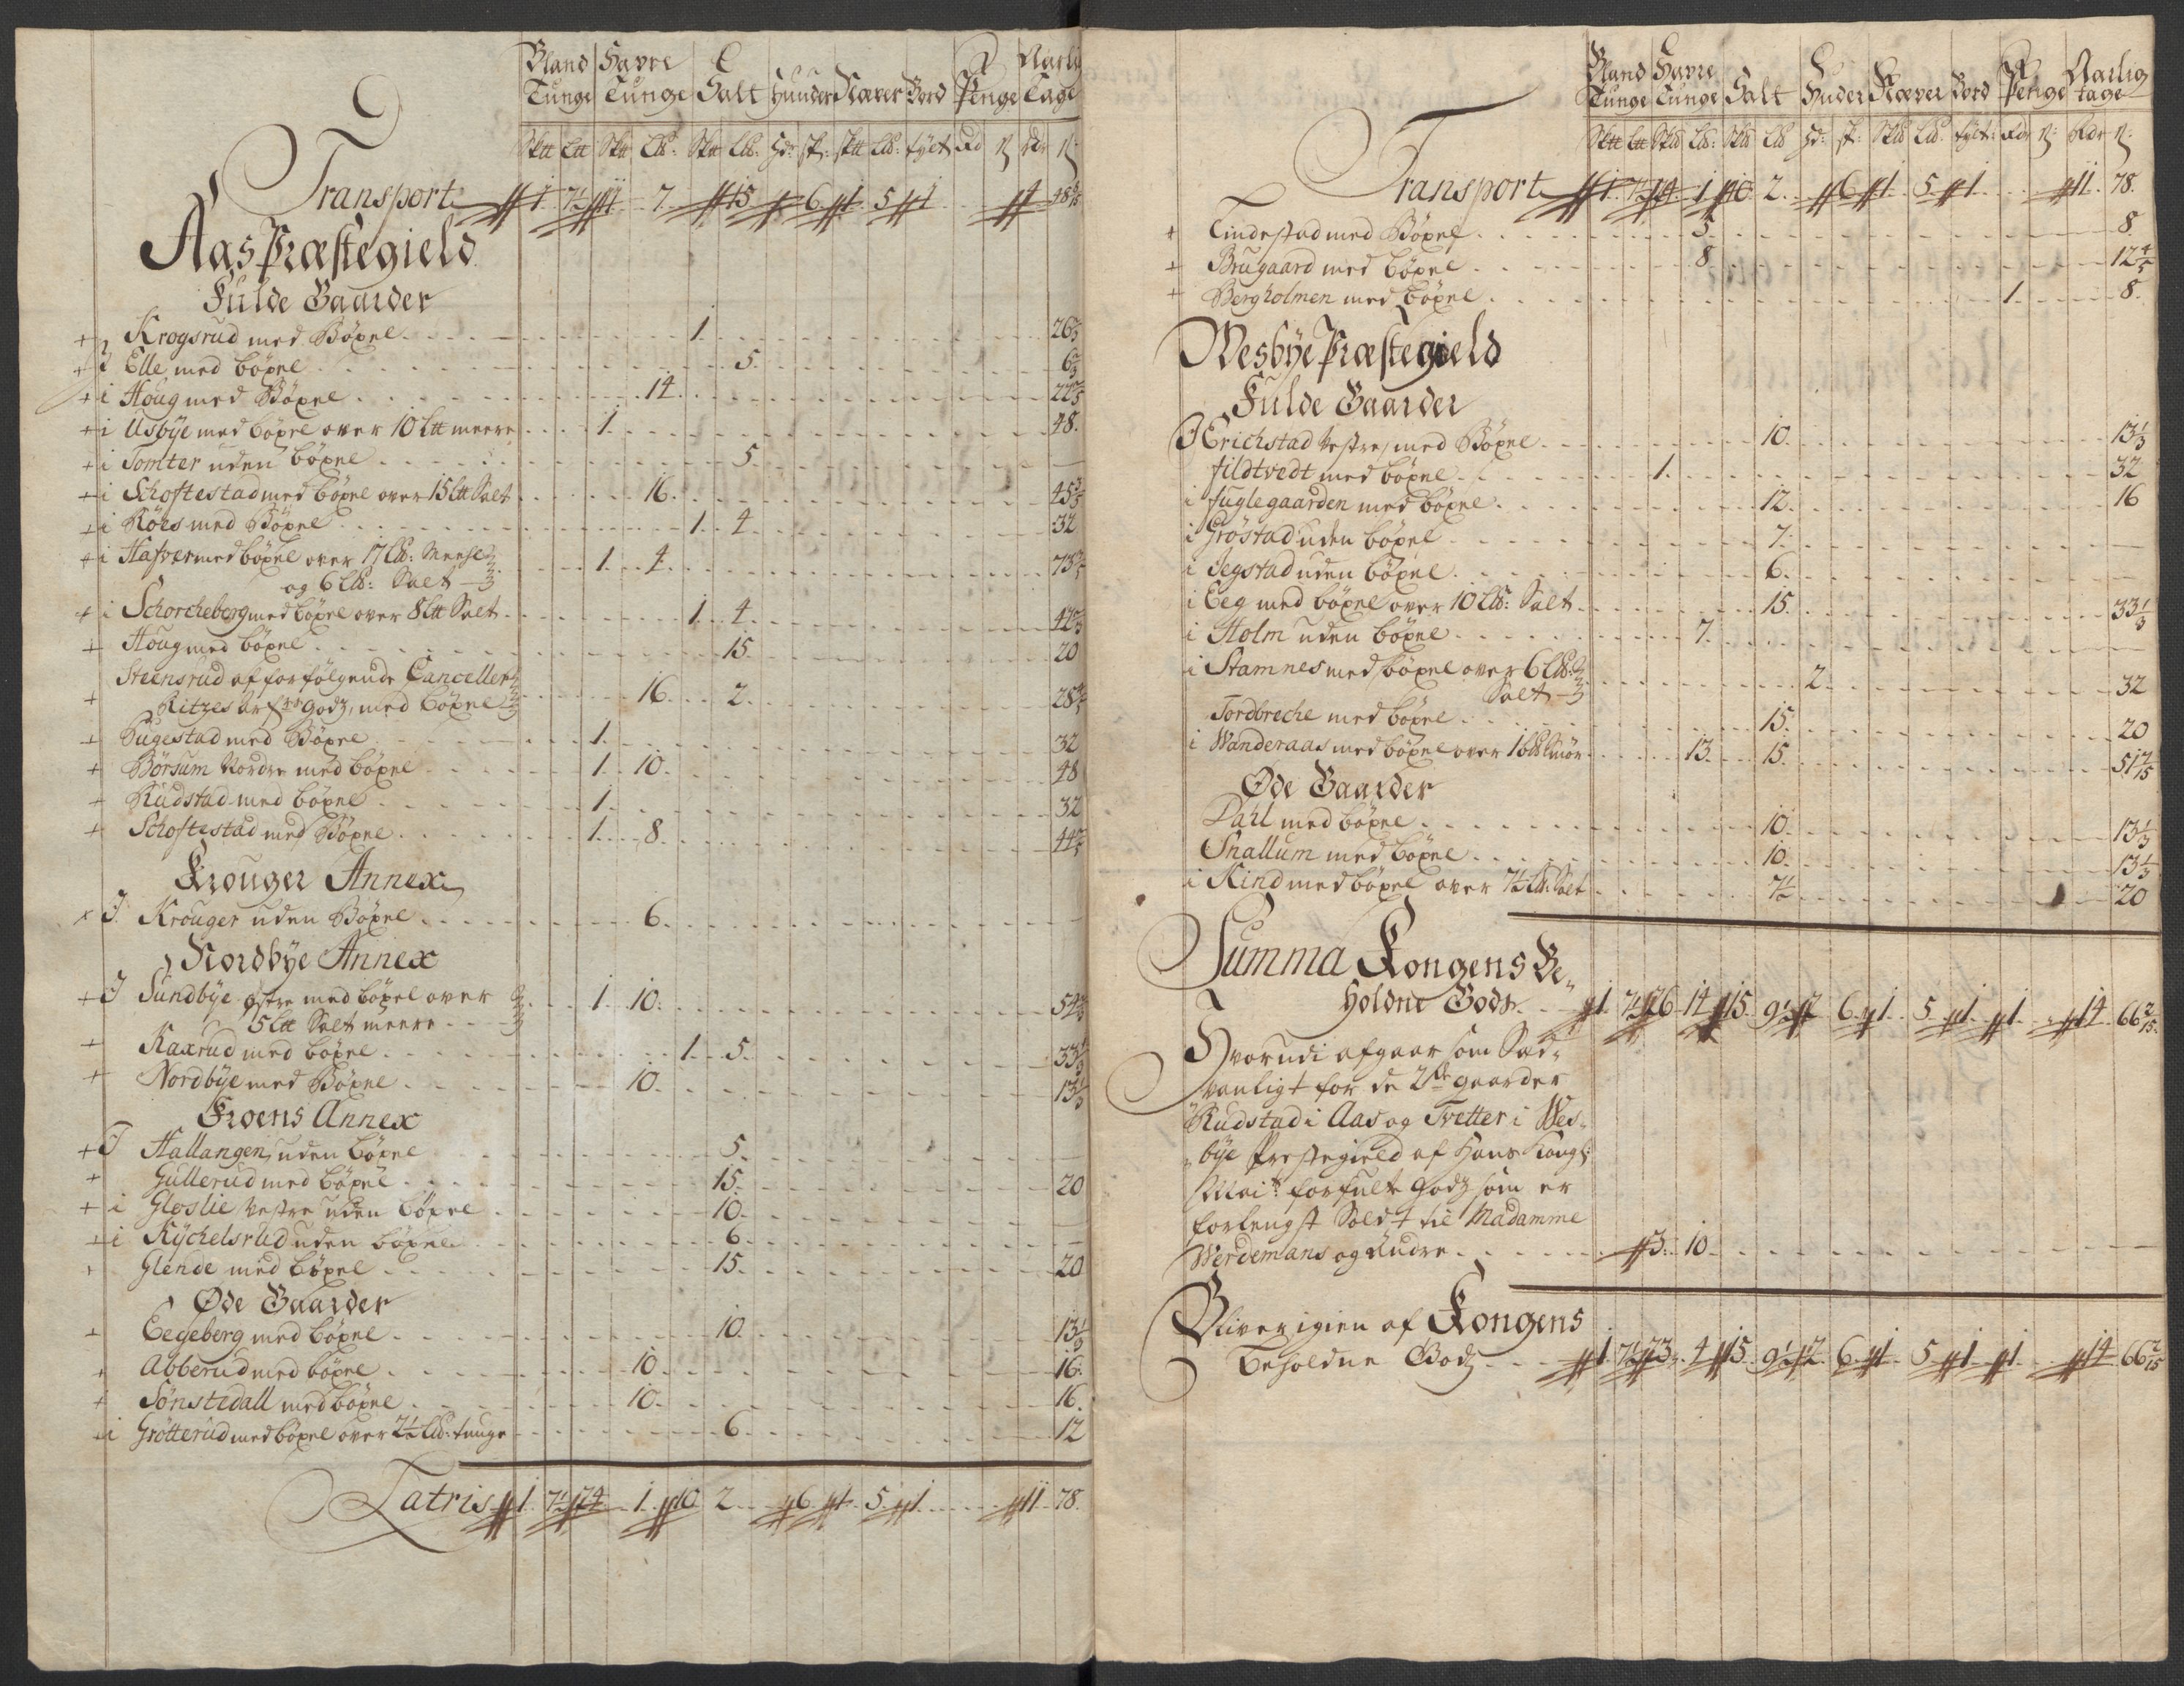 Bland Havre Aarlig
Tunge Tunge Salt Huuder Næver Bord Penge Tage
Transport 1 7½ 7 15 6 1 5 1 4
Aas Præstegield
Fulde Gaarder
+ Krogsrud med Böxel 1 26⅔
+ J Elle med böxel 5 6⅔
+ i Houg med Böxel 14 22⅖
+ i Usbÿe med böxel over 10 Ltt meere 1 48
+ i Tomter uden böxel 5
+ i Schoftestad med böxel over 15 Ltt Salt 16 45⅗
+ i Röes med Böxel 1 4 32
+ i Hafver med böxel over 17 Lb:
og 6 Lb: Salt 1 4 73
+ i Schorcheberg med böxel over 8 Ltt Salt 1 4 42⅔
+ Houg med böxel 15 20
Steensrud af forfölgende Canceller
+ Ritzes Arf: Godz, med böxel 16 2 28
+ Hugestad med Böxel 1 32
+ Börsum Nordre med böxel 1 10 48
+ Rudstad med böxel 1 32
+ Schoftestad med Böxel 1 8 44
Krouger Annex
x J Krouger uden Böxel 6
Nordbÿe Annex
+ J Sundbÿe östre med böxel over
5 Ltt Salt meere 1 10 54⅔
+ Kaxrud med böxel 1 5 33⅓
+ Nordbÿe med Böxel 10 13⅓
Froens Annex
+ J Hallangen uden böxel 5
+ Gullerud med böxel 15 20
+ i Gloslie Vestre uden böxel 10
+ i Kÿchelsrud uden böxel 6
+ Glende med böxel 15 20
Øde Gaarder
+ Eegeberg med böxel 10 13⅓
+ Abberud med böxel 10 16
+ Sönstedall med böxel 10 16
+ i Grötterud med böxel over 2½ Lb: tunge 6 12
Latris 1 7½ 24 1 10 2 6 1 5 1 11 78
Bland Havre Aarlig
Tunge Tunge Salt Huder Næver Bord Penge tage
Transport 1 7½ 24 1 10 2 6 1 5 1 11 78
+ Lindestad med Böxel 5 8
+ Brugaard med böxel 8 12⅘
+ Bergholmen med böxel 1 8
Wesbÿe Præstegield
Fulde Gaarder
J Erichstad Vestre med Böxel 10 13⅓
fildtvedt med böxel 1 32
i fuglegaarden med böxel 12 16
i Gröstad uden böxel 7
i Jegstad uden böxel 6
i Eeg med böxel over 10 Lb: Salt 15 33⅓
i Holm uden böxel 7
i Stamnes med böxel over 6 Lb:
Salt 2 32
Tordbreche med böxel 15 20
i Wanderaas med böxel over 1 Lb Smör 13 15 51
Øde Gaarder
Dahl med böxel 10 13⅓
Snallum med böxel 10 13⅓
i Kind med böxel over 7½ Lb: Salt 7½ 20
Summa Kongens Be-
holdne Godz 1 7½ 26 14 15 9½ 2 6 1 5 1 1 14 66 2/15
Hvorudi afgaar som Sæd-
vanligt for de 2de gaarder
Rudstad i Aas og Tvetter i Wes-
bÿe Prestegield af Hans Kongl:
Mai:ts forfulte Godz som er
forlengst Soldt til Madamme
Werdemans og Andre 3 10
Bliver igien af Kongens
Beholdne Godz 1 7½ 23 4 15 9½ 2 6 1 5 1 1 14 66 2/15